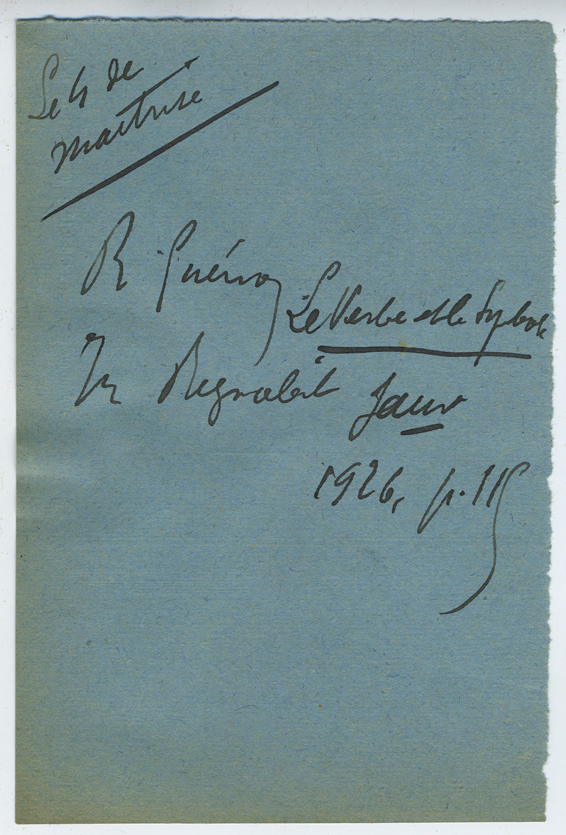 Le 4 de
maîtrise
R. Guénon
Le Verbe et le Symbole
In Regnabit Janv
1926, p. 115